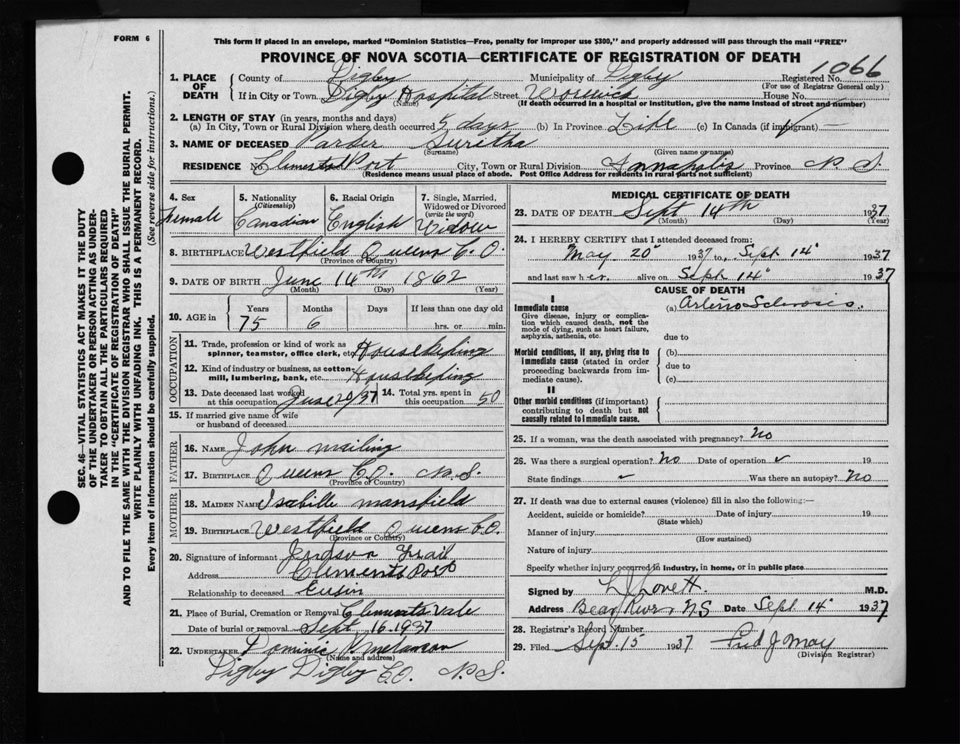 FORM 6
This form if placed in an envelope, marked "Dominion Statistics—Free, penalty for improper use $300," and properly addressed will pass through the mail "FREE"
PROVINCE OF NOVA SCOTIA—CERTIFICATE OF REGISTRATION OF DEATH
1. PLACE OF DEATH County of Digby Municipality of Digby Registered No. 1066
(For use of Registrar General only)
If in City or Town Digby Hospital Street Warwick House No.
(Name) (If death occurred in a hospital or institution, give the name instead of street and number)
2. LENGTH OF STAY (in years, months and days)
(a) In City, Town or Rural Division where death occurred 5 days (b) In Province Life (c) In Canada (if immigrant) —
3. NAME OF DECEASED Suretha
(Surname) (Given name or names)
RESIDENCE Clements Port City, Town or Rural Division Annapolis Province N. S.
(Residence means usual place of abode. Post Office Address for residents in rural parts not sufficient)
4. Sex Female
5. Nationality (Citizenship) Canadian
6. Racial Origin English
7. Single, Married, Widowed or Divorced (write the word) Widow
8. BIRTHPLACE Westfield Queens C.O.
(Province or Country)
9. DATE OF BIRTH June 14th 1862
(Month) (Day) (Year)
10. AGE in Years Months Days If less than one day
75 6 hrs. or min.
OCCUPATION
11. Trade, profession or kind of work as spinner, teamster, office clerk, etc. Housekeeping
12. Kind of industry or business, as cotton-mill, lumbering, bank, etc. Housekeeping
13. Date deceased last worked at this occupation June 20/37 14. Total yrs. spent in this occupation 50
15. If married give name of wife or husband of deceased
FATHER
16. NAME John Mailing
17. BIRTHPLACE Queens CO. N. S.
(Province or Country)
MOTHER
18. MAIDEN NAME Isabille mansfield
19. BIRTHPLACE Westfield Queens C.O.
(Province or Country)
20. Signature of informant Judson Trail
Address Clements Port
Relationship to deceased
21. Place of Burial, Cremation or Removal Clements vale
Date of burial or removal Sept. 16. 1937
22. UNDERTAKER Dominic Melanson
(Name and address)
Digby Digby CO. N. S.
MEDICAL CERTIFICATE OF DEATH
23. DATE OF DEATH Sept 14th 1937
(Month) (Day) (Year)
24. I HEREBY CERTIFY that I attended deceased from:
May 20" 1937 to Sept 14" 1937
and last saw her alive on Sept 14" 1937
CAUSE OF DEATH
I
Immediate cause (a) Arterio Sclerosis
Give disease, injury or complication which caused death, not the mode of dying, such as heart failure, asphyxia, asthenia, etc.
due to
Morbid conditions, if any, giving rise to immediate cause (stated in order proceeding backwards from immediate cause).
(b)
due to
(c)
II
Other morbid conditions (if important) contributing to death but not causally related to immediate cause.
25. If a woman, was the death associated with pregnancy? No
26. Was there a surgical operation? No Date of operation 19
State findings Was there an autopsy? No
27. If death was due to external causes (violence) fill in also the following:—
Accident, suicide or homicide? Date of injury 19
(State which)
Manner of injury
(How sustained)
Nature of injury
Specify whether injury occurred in industry, in home, or in public place
Signed by L J Lovett M.D.
Address Bear River NS Date Sept 14" 1937
28. Registrar's Record Number
29. Filed Sept. 15 1937 Fred J May
(Division Registrar)
SEC. 46—VITAL STATISTICS ACT MAKES IT THE DUTY
OF THE UNDERTAKER OR PERSON ACTING AS UNDER-
TAKER TO OBTAIN ALL THE PARTICULARS REQUIRED
IN THE "CERTIFICATE OF REGISTRATION OF DEATH"
AND TO FILE THE SAME WITH THE DIVISION REGISTRAR WHO SHALL ISSUE THE BURIAL PERMIT.
WRITE PLAINLY WITH UNFADING INK. THIS IS A PERMANENT RECORD.
Every item of information should be carefully supplied. (See reverse side for instructions.)